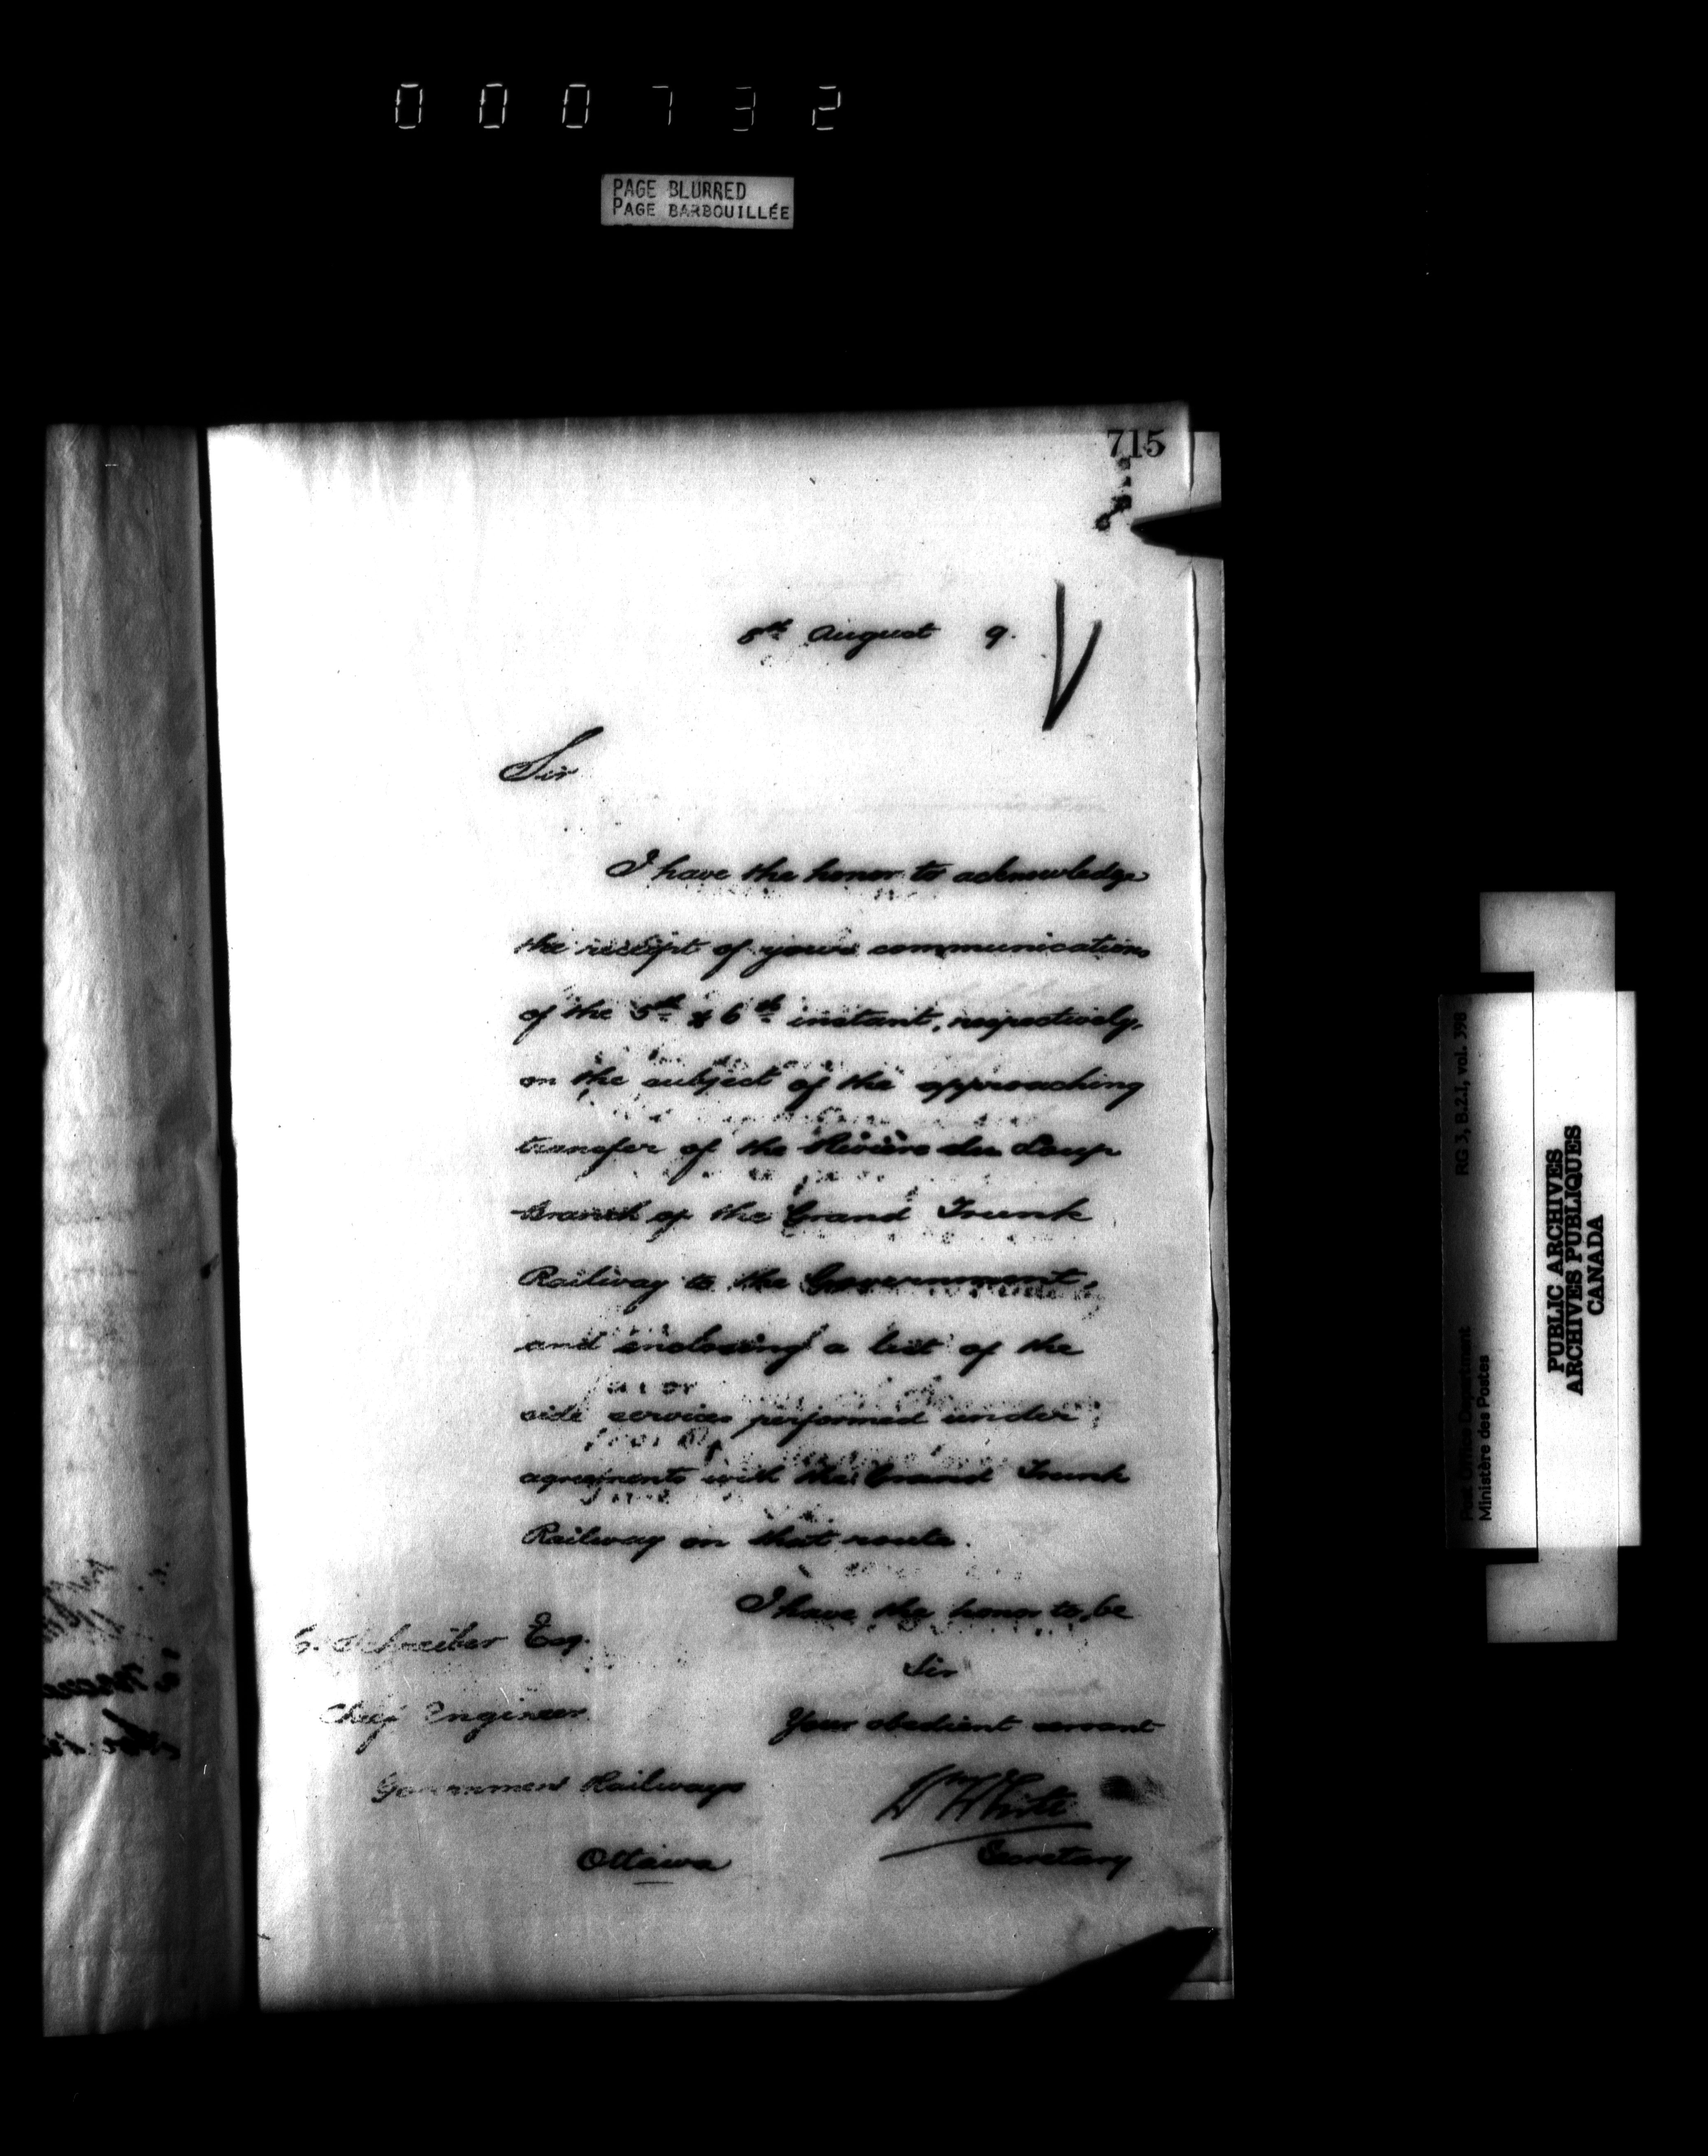 000732
PAGE BLURRED
PAGE BARBOUILLÉE
715
8th August 9.
Sir
I have the honor to acknowledge
the receipt of yours communications
of the 5th & 6th instant, respectively,
on the subject of the approaching
transfer of the Rivière du Loup
Branch of the Grand Trunk
Railway to the Government,
and enclosing a list of the
side services performed under
agreements with the Grand Trunk
Railway on that route.
I have the honor to be
Sir
Your obedient servant
Wm White
Secretary
C. Schreiber Esq.
Chief Engineer
Government Railways
Ottawa
RG 3, B.2.1, vol. 398
Post Office Department
Ministère des Postes
PUBLIC ARCHIVES
ARCHIVES PUBLIQUES
CANADA